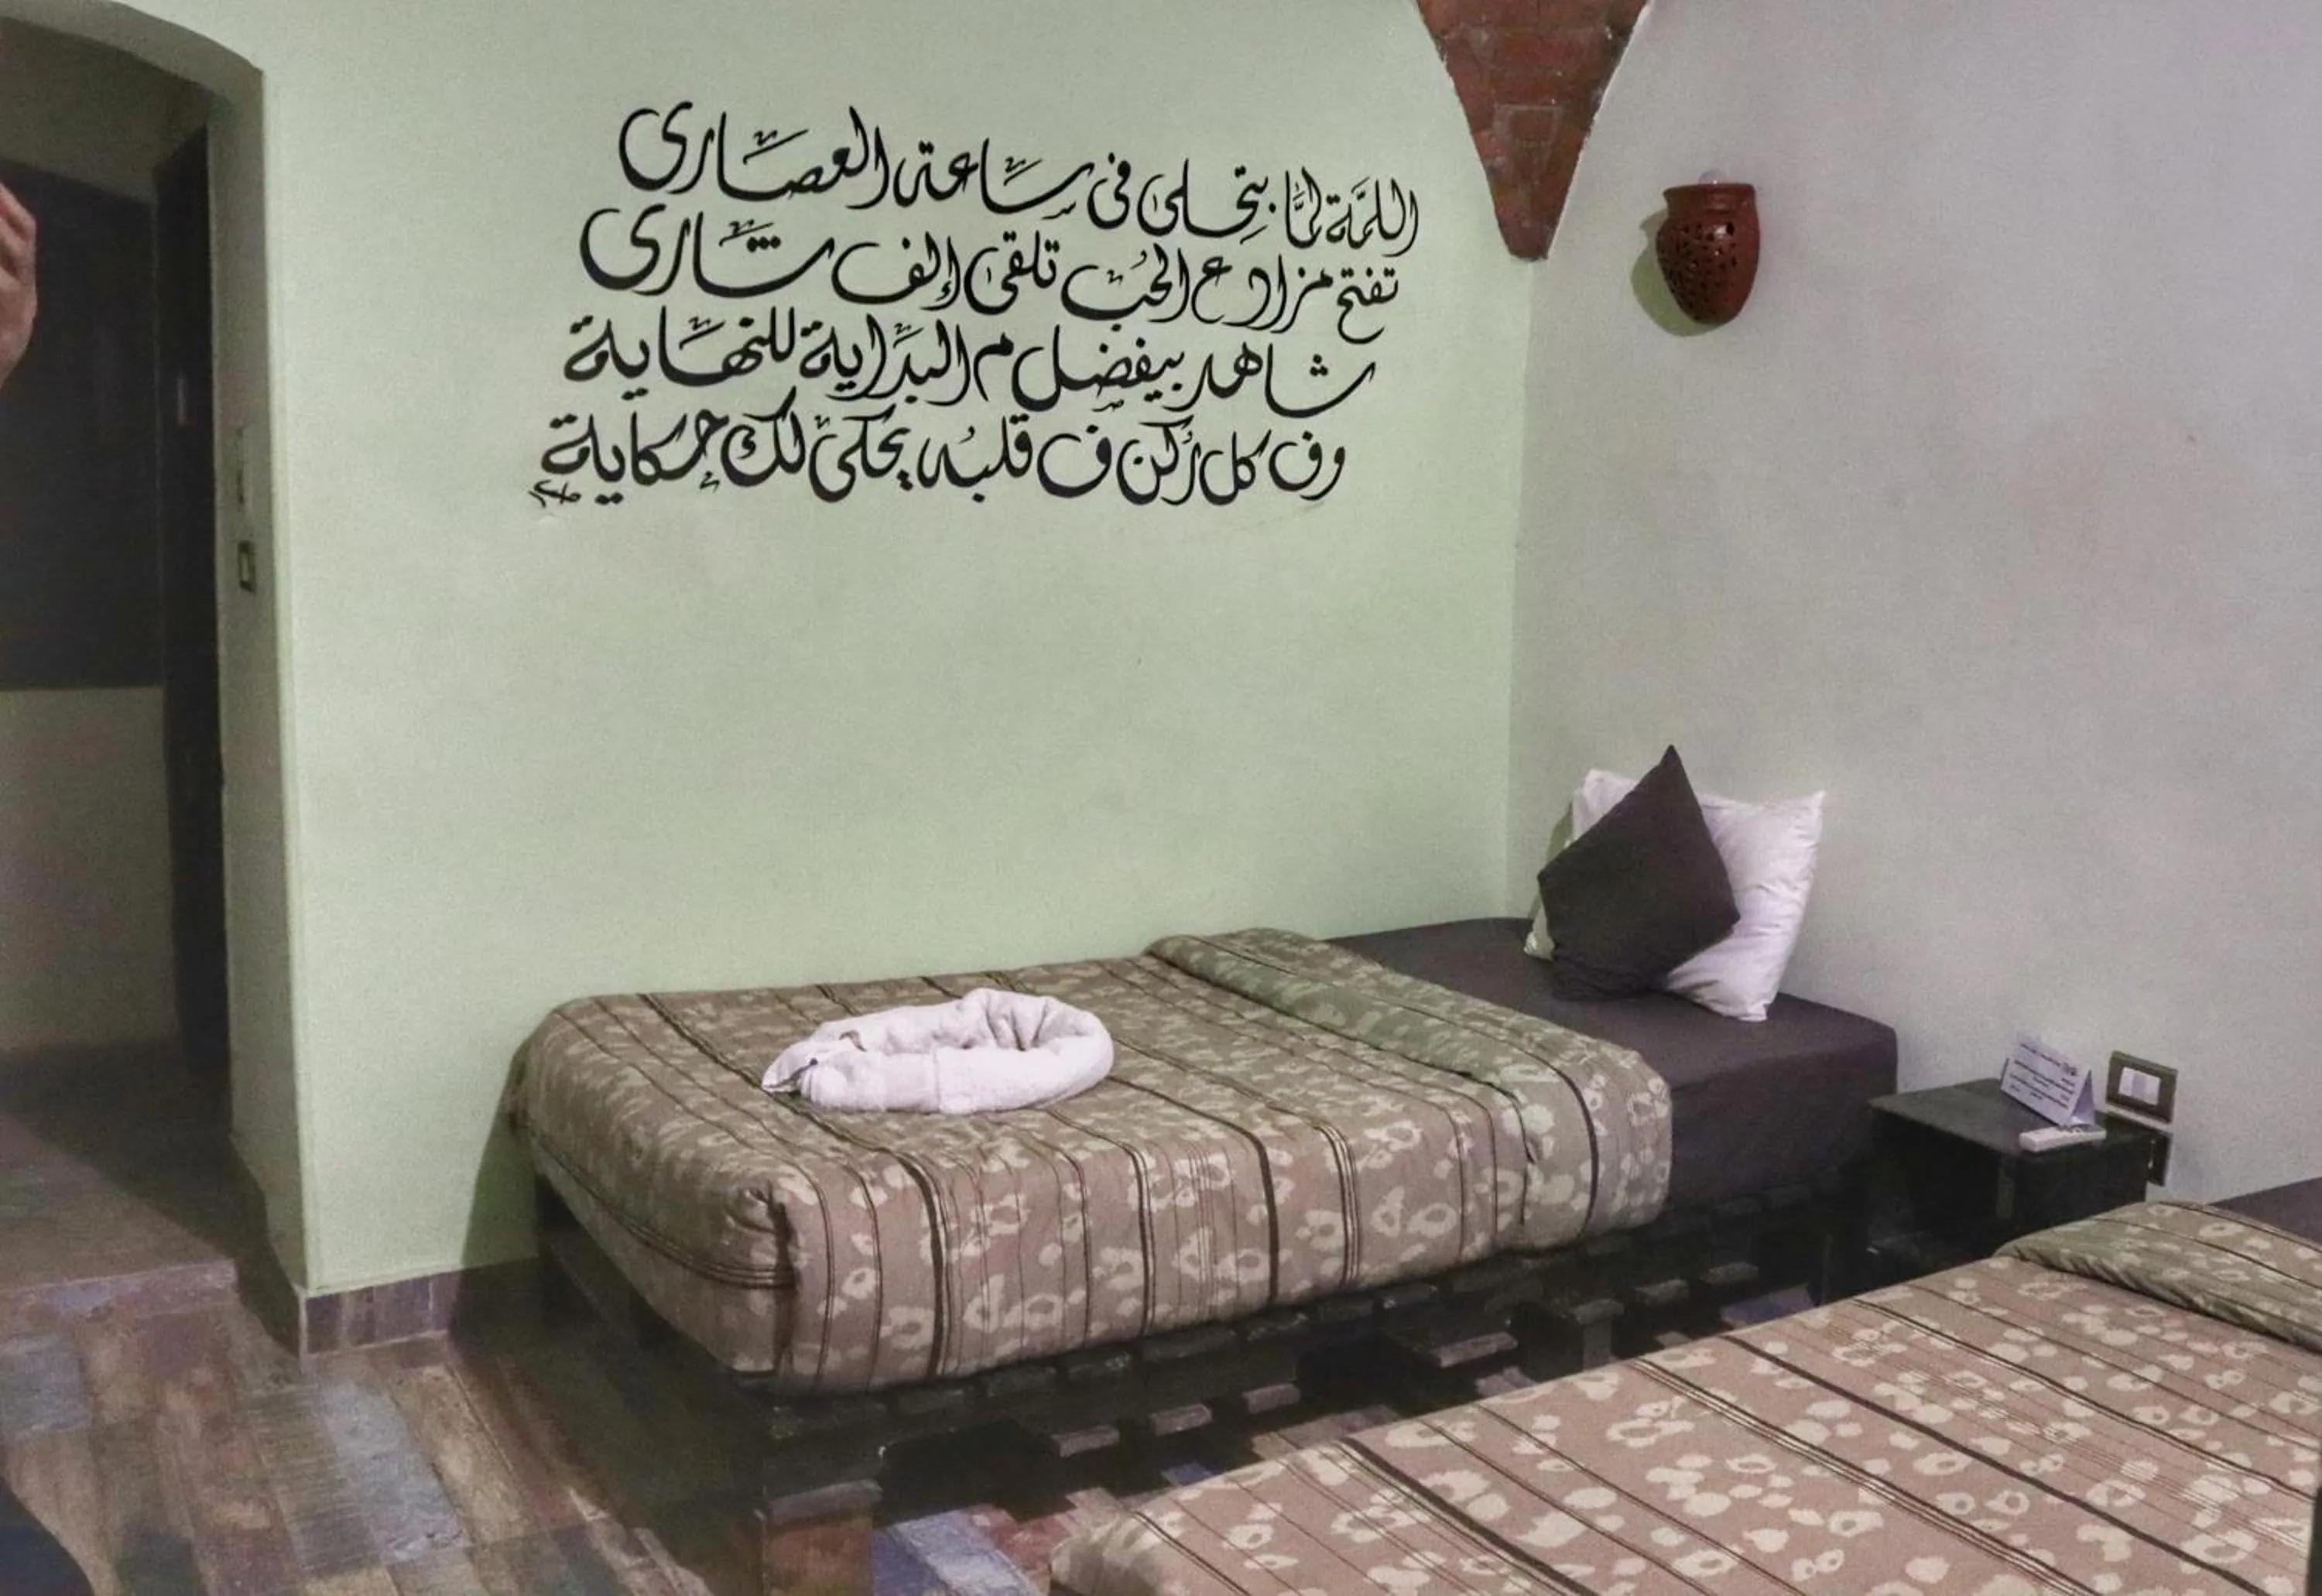 اللمَّة لمَّا بتِحلى فى سَاعة العصَارى
تفتح مزاد ع الحُب تلقى إلف شَارى
شاهد بيفضل م البدَاية للنهَاية
وف كل رُكن ف قلبُه يحكى لك حكاية